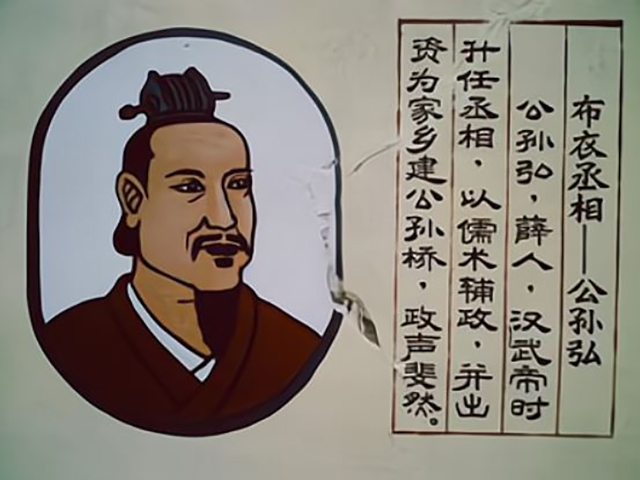 布衣丞相——公孙弘
公孙弘，薛人，汉武帝时
升任丞相，以儒术辅政，并出
资为家乡建公孙桥，政声斐然。